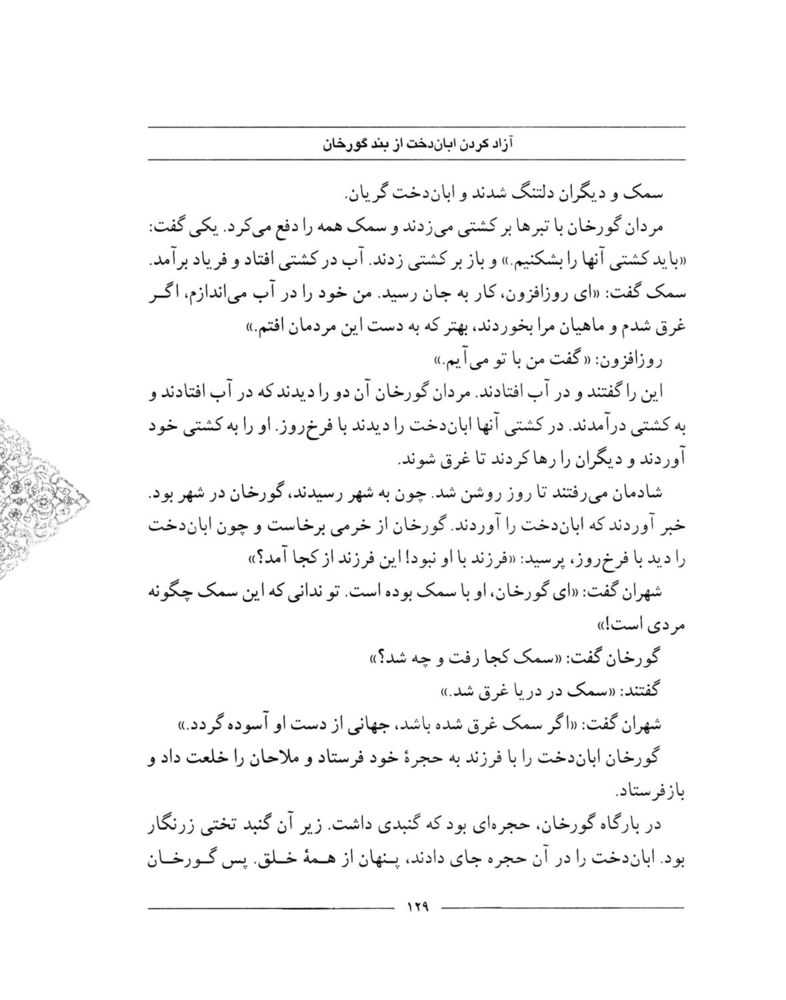 آزاد کردن ابان‌دخت از بند گورخان
سمک و دیگران دلتنگ شدند و ابان‌دخت گریان.
مردان گورخان با تبرها بر کشتی می‌زدند و سمک همه را دفع می‌کرد. یکی گفت:
«باید کشتی آنها را بشکنیم.» و باز بر کشتی زدند. آب در کشتی افتاد و فریاد برآمد.
سمک گفت: «ای روزافزون، کار به جان رسید. من خود را در آب می‌اندازم، اگـر
غرق شدم و ماهیان مرا بخوردند، بهتر که به دست این مردمان افتم.»
روزافزون: «گفت من با تو می‌آیم.»
این را گفتند و در آب افتادند. مردان گورخان آن دو را دیدند که در آب افتادند و
به کشتی درآمدند. در کشتی آنها ابان‌دخت را دیدند با فرخ‌روز. او را به کشتی خود
آوردند و دیگران را رها کردند تا غرق شوند.
شادمان می‌رفتند تا روز روشن شد. چون به شهر رسیدند، گورخان در شهر بود.
خبر آوردند که ابان‌دخت را آوردند. گورخان از خرمی برخاست و چون ابان‌دخت
را دید با فرخ‌روز، پرسید: «فرزند با او نبود! این فرزند از کجا آمد؟»
شهران گفت: «ای گورخان، او با سمک بوده است. تو ندانی که این سمک چگونه
مردی است!»
گورخان گفت: «سمک کجا رفت و چه شد؟»
گفتند: «سمک در دریا غرق شد.»
شهران گفت: «اگر سمک غرق شده باشد، جهانی از دست او آسوده گردد.»
گورخان ابان‌دخت را با فرزند به حجرهٔ خود فرستاد و ملاحان را خلعت داد و
بازفرستاد.
در بارگاه گورخان، حجره‌ای بود که گنبدی داشت. زیر آن گنبد تختی زرنگار
بود. ابان‌دخت را در آن حجره جای دادند، پـنهان از همـهٔ خـلق. پس گـورخـان
۱۲۹